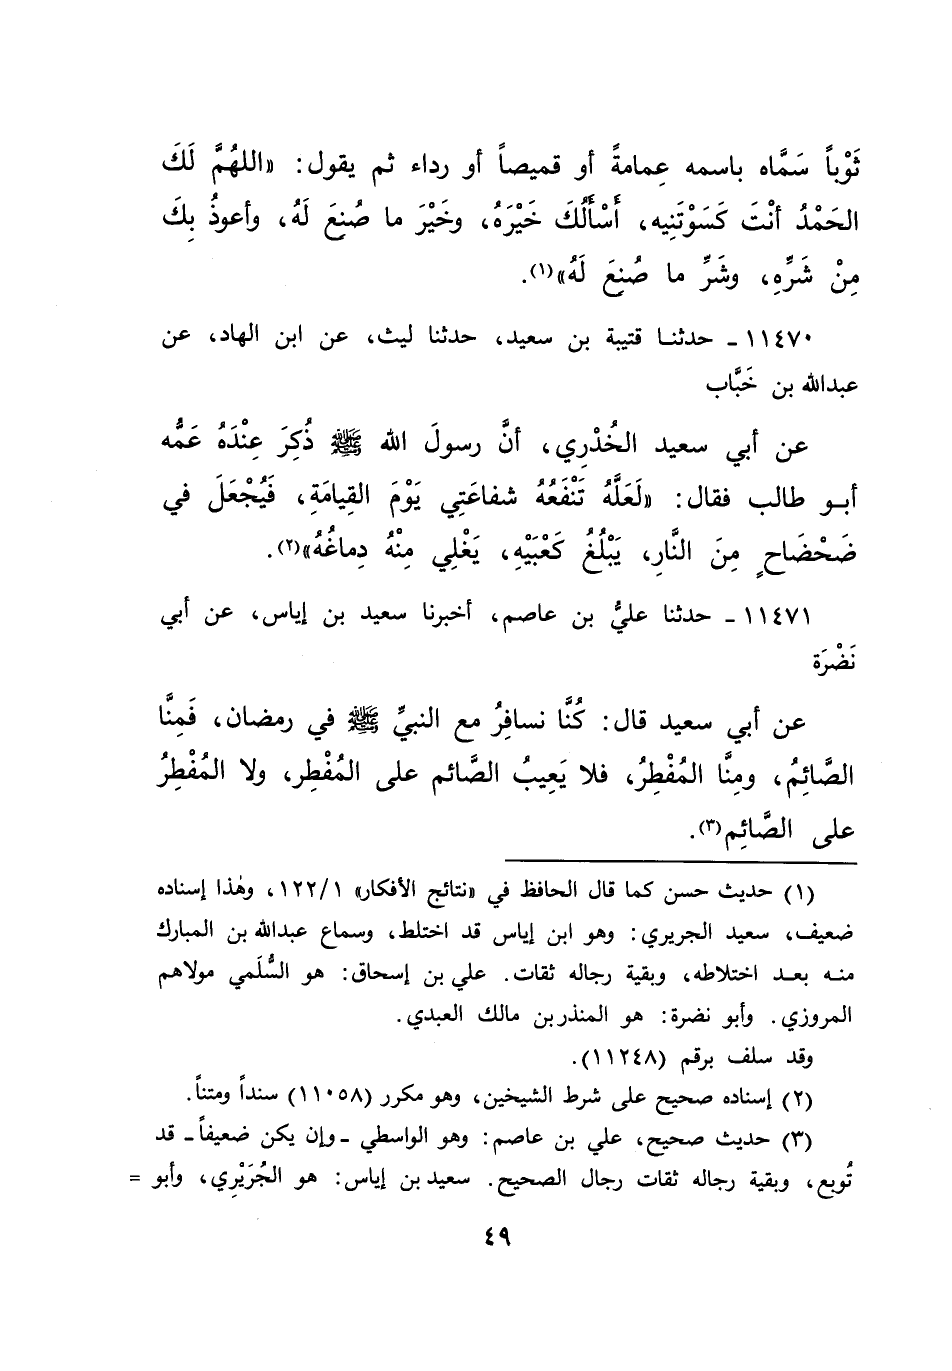 ثَوْباً سَمَّاه باسمه عِمامةً أو قميصاً أو رداء ثم يقول: «اللهُمَّ لَكَ
الحَمْدُ أنْتَ كَسَوْتَنِيه، أَسْأَلُكَ خَيْرَهُ، وخَيْرَ ما صُنِعَ لَهُ، وأعوذُ بِكَ
مِنْ شَرِّهِ، وشَرِّ ما صُنِعَ لَهُ»(١).
١١٤٧٠ ـ حدثنا قتيبة بن سعيد، حدثنا ليث، عن ابن الهاد، عن
عبدالله بن خَبَّاب
عن أبي سعيد الخُدْرِي، أنَّ رسولَ الله ﷺ ذُكِرَ عِنْدَهُ عَمُّه
أبو طالب فقال: «لَعَلَّهُ تَنْفَعُهُ شفاعَتِي يَوْمَ القِيامَةِ، فَيُجْعَلَ في
ضَحْضَاحٍ مِنَ النَّارِ، يَبْلُغُ كَعْبَيْهِ، يَغْلِي مِنْهُ دِماغُهُ»(٢).
١١٤٧١ ـ حدثنا عليُّ بن عاصم، أخبرنا سعيد بن إياس، عن أبي
نَضْرَة
عن أبي سعيد قال: كُنَّا نسافِرُ مع النبيِّ ﷺ في رمضان، فَمِنَّا
الصَّائِمُ، ومِنَّا المُفْطِرُ، فلا يَعِيبُ الصَّائم على المُفْطِر، ولا المُفْطِرُ
على الصَّائِم(٣).
(١) حديث حسن كما قال الحافظ في «نتائج الأفكار» ١٢٢/١، وهٰذا إسناده
ضعيف، سعيد الجريري: وهو ابن إياس قد اختلط، وسماع عبدالله بن المبارك
منه بعد اختلاطه، وبقية رجاله ثقات. علي بن إسحاق: هو السُّلَمي مولاهم
المروزي. وأبو نضرة: هو المنذر بن مالك العبدي.
وقد سلف برقم (١١٢٤٨).
(٢) إسناده صحيح على شرط الشيخين، وهو مكرر (١١٠٥٨) سنداً ومتناً.
(٣) حديث صحيح، علي بن عاصم: وهو الواسطي ـ وإن يكن ضعيفاً ـ قد
تُوبع، وبقية رجاله ثقات رجال الصحيح. سعيد بن إياس: هو الجُرَيْري، وأبو =
٤٩